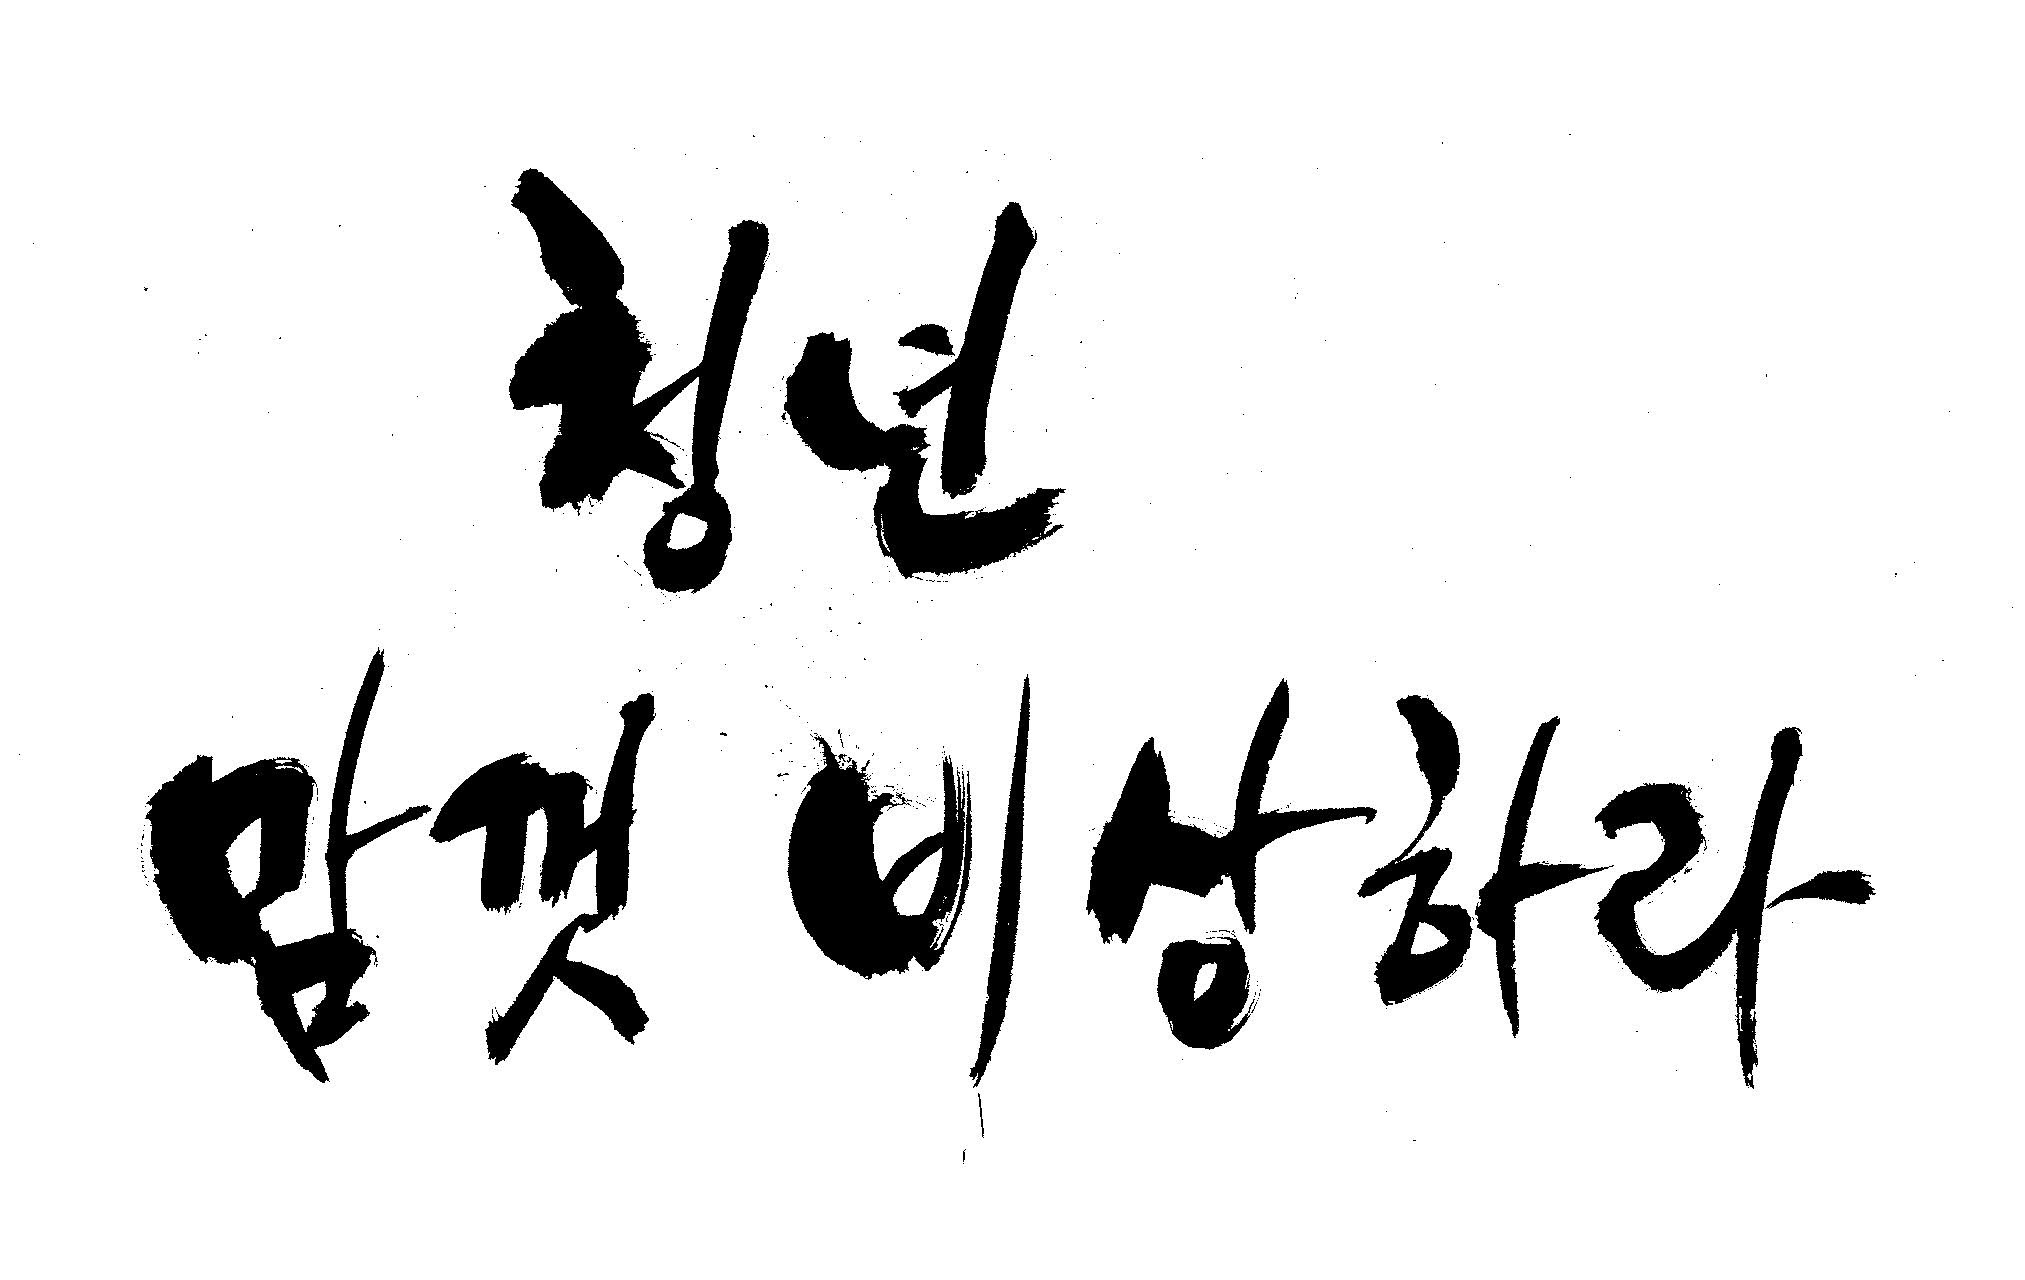 청년
맘껏 비상하라